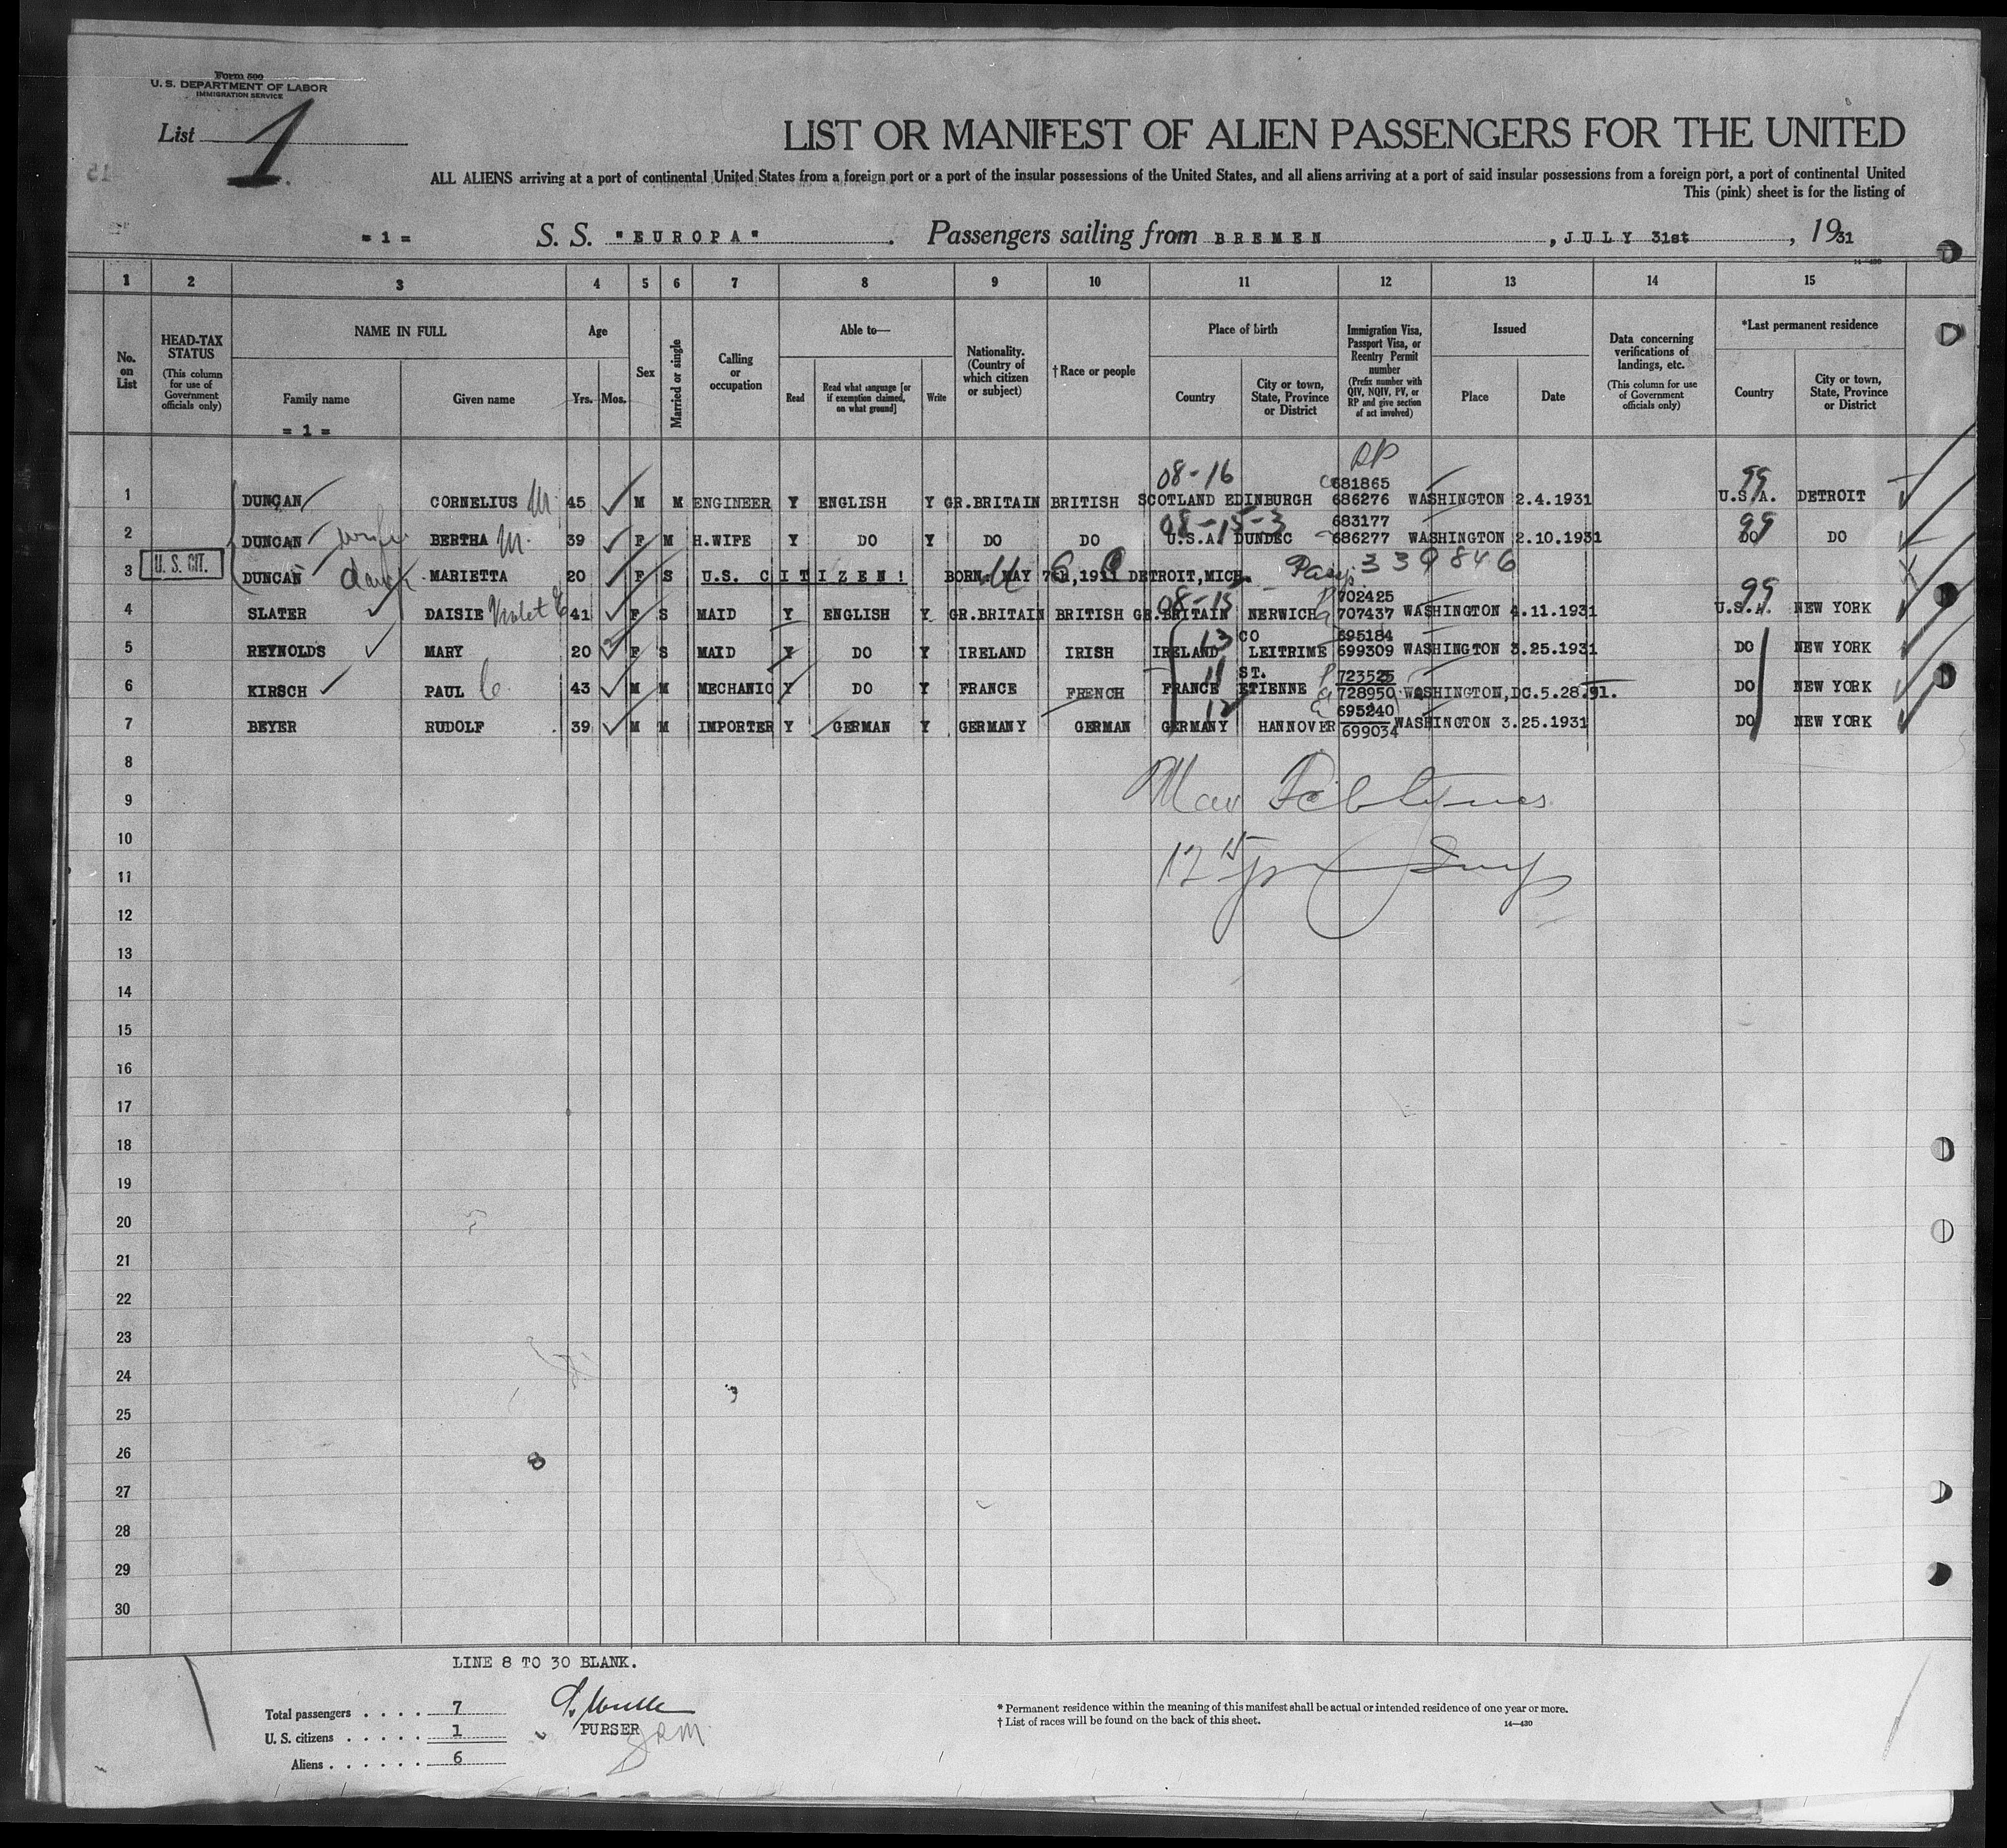 Form 500
U. S. DEPARTMENT OF LABOR
IMMIGRATION SERVICE
List 1
LIST OR MANIFEST OF ALIEN PASSENGERS FOR THE UNITED
ALL ALIENS arriving at a port of continental United States from a foreign port or a port of the insular possessions of the United States, and all aliens arriving at a port of said insular possessions from a foreign port, a port of continental United
This (pink) sheet is for the listing of
= 1 = S. S. "EUROPA" . Passengers sailing from BREMEN , JULY 31st , 1931
14—430
1 2 3 4 5 6 7 8 9 10 11 12 13 14 15
No. on List
HEAD-TAX STATUS
(This column for use of Government officials only)
NAME IN FULL
Family name
Given name
= 1 =
Age
Yrs. Mos.
Sex
Married or single
Calling or occupation
Able to—
Read
Read what language [or if exemption claimed, on what ground]
Write
Nationality. (Country of which citizen or subject)
† Race or people
Place of birth
Country
City or town, State, Province or District
Immigration Visa, Passport Visa, or Reentry Permit number
(Prefix number with QIV, NQIV, PV, or RP and give section of act involved)
Issued
Place
Date
Data concerning verifications of landings, etc.
(This column for use of Government officials only)
*Last permanent residence
Country
City or town, State, Province or District
RP
08-16 681865 99
1 DUNCAN CORNELIUS M. 45 M M ENGINEER Y ENGLISH Y GR.BRITAIN BRITISH SCOTLAND EDINBURGH 686276 WASHINGTON 2.4.1931 U.S.A. DETROIT
08-15-3 683177 99
2 DUNCAN wife BERTHA M. 39 F M H.WIFE Y DO Y DO DO U.S.A. DUNDEC 686277 WASHINGTON 2.10.1931 DO DO
U. S. CIT.
3 DUNCAN MARIETTA 20 F S U.S. CITIZEN! BORN: MAY 7th, 1911 DETROIT, MICH. Pass. 339846
08-15 P 702425 99
4 SLATER DAISIE Violet E 41 F S MAID Y ENGLISH Y GR.BRITAIN BRITISH GR.BRITAIN NERWICH 707437 WASHINGTON 4.11.1931 U.S.A. NEW YORK
13 CO 695184
5 REYNOLDS MARY 20 F S MAID Y DO Y IRELAND IRISH IRELAND LEITRIME 699309 WASHINGTON 3.25.1931 DO NEW YORK
11 ST. P 723525
6 KIRSCH PAUL C. 43 M M MECHANIC Y DO Y FRANCE FRENCH FRANCE ETIENNE 728950 WASHINGTON, DC. 5.28.31. DO NEW YORK
12 695240
7 BEYER RUDOLF 39 M M IMPORTER Y GERMAN Y GERMANY GERMAN GERMANY HANNOVER 699034 WASHINGTON 3.25.1931 DO NEW YORK
8
9
10
11
12
13
14
15
16
17
18
19
20
21
22
23
24
25
26
27
28
29
30
LINE 8 TO 30 BLANK.
Total passengers . . . . 7
U. S. citizens . . . . . 1
Aliens . . . . . . 6
PURSER
* Permanent residence within the meaning of this manifest shall be actual or intended residence of one year or more.
† List of races will be found on the back of this sheet.
14—430